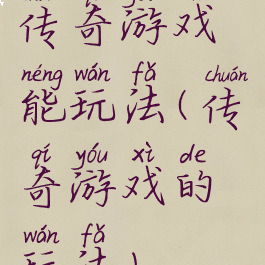 传奇游戏
néng wán fǎ chuán
能玩法(传
qí yóu xì de
奇游戏的
wán fǎ
玩法)